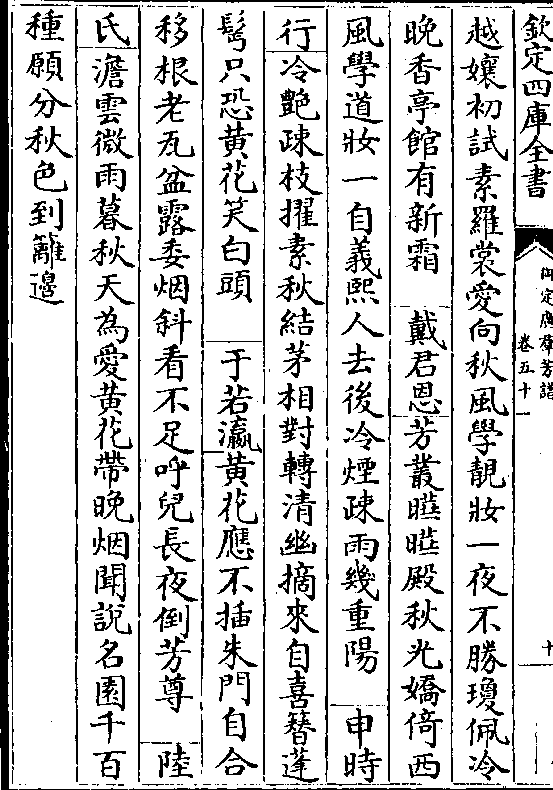 欽定四庫全書
御定廣羣芳譜
卷五十
十
越孃初試素羅裳愛向秋風學靚妝一夜不勝瓊佩冷
晚香亭館有新霜　戴君恩芳叢曖曖殿秋光嬌倚西
風學道妝一自義熙人去後冷煙疎雨幾重陽　申時
行冷艷疎枝擢素秋結茅相對轉清幽摘來自喜簪蓬
髩只恐黄花笑白頭　于若瀛黄花應不插朱門自合
移根老瓦盆露委烟斜看不足呼兒長夜倒芳尊　陸
氏澹雲微雨暮秋天為愛黄花帶晚烟聞說名園千百
種願分秋色到籬邉